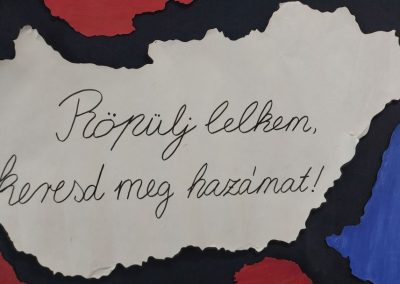 Röpülj lelkem,
keresd meg hazámat!